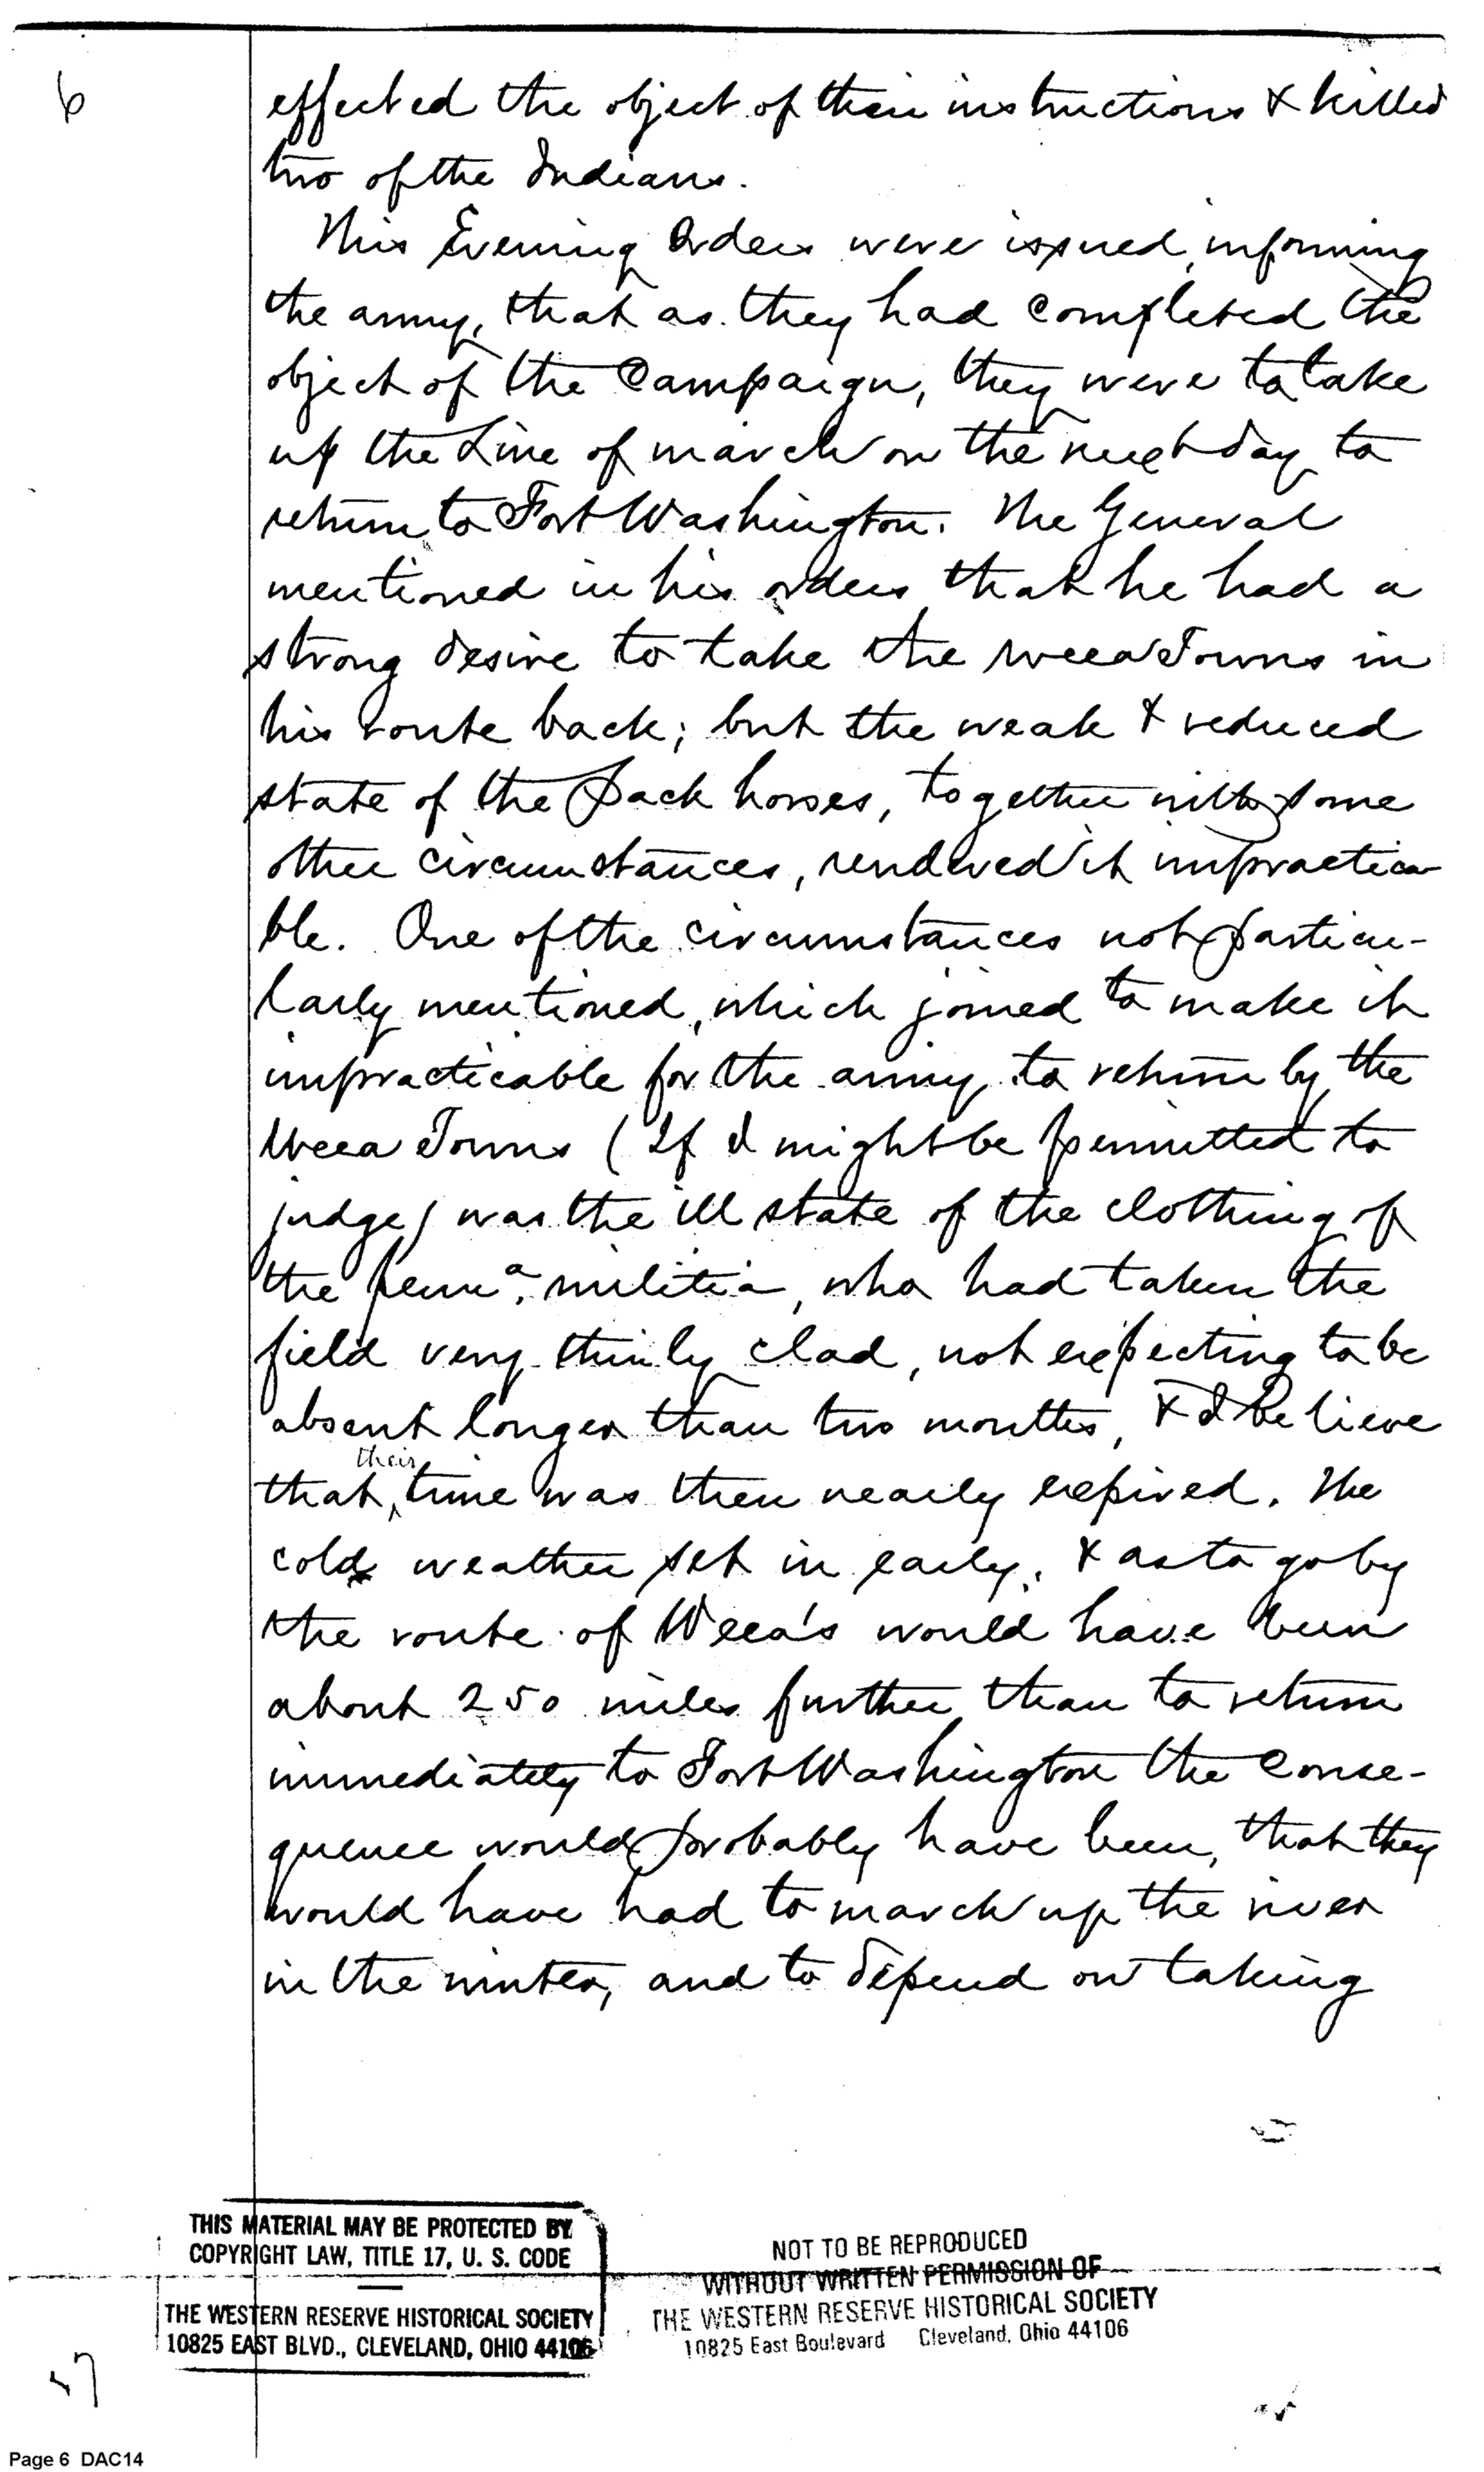 6
effected the object of their instructions & killed
two of the Indians.
This Evening Orders were issued, informing
the army, that as they had completed the
object of the Campaign, they were to take
up the Line of march on the next day to
return to Fort Washington. The General
mentioned in his orders that he had a
strong desire to take the Weea Towns in
his route back; but the weak & reduced
state of the Pack horses, together with some
other circumstances, rendered it impractica-
ble. One of the circumstances not particu-
larly mentioned, which joined to make it
impracticable for the army to return by the
Weea Towns (If I might be permitted to
judge) was the ill state of the clothing of
the pennª. militia, who had taken the
field very thinly clad, not expecting to be
absent longer than two months, & I believe
that their time was then nearly expired. The
cold weather set in early, & as to go by
the route of Weea's would have been
about 250 miles further than to return
immediately to Fort Washington the Conse-
quence would probably have been, that they
would have had to march up the river
in the winter, and to depend on taking
THIS MATERIAL MAY BE PROTECTED BY
COPYRIGHT LAW, TITLE 17, U. S. CODE
THE WESTERN RESERVE HISTORICAL SOCIETY
10825 EAST BLVD., CLEVELAND, OHIO 44106
NOT TO BE REPRODUCED
WITHOUT WRITTEN PERMISSION OF
THE WESTERN RESERVE HISTORICAL SOCIETY
10825 East Boulevard Cleveland, Ohio 44106
Page 6 DAC14